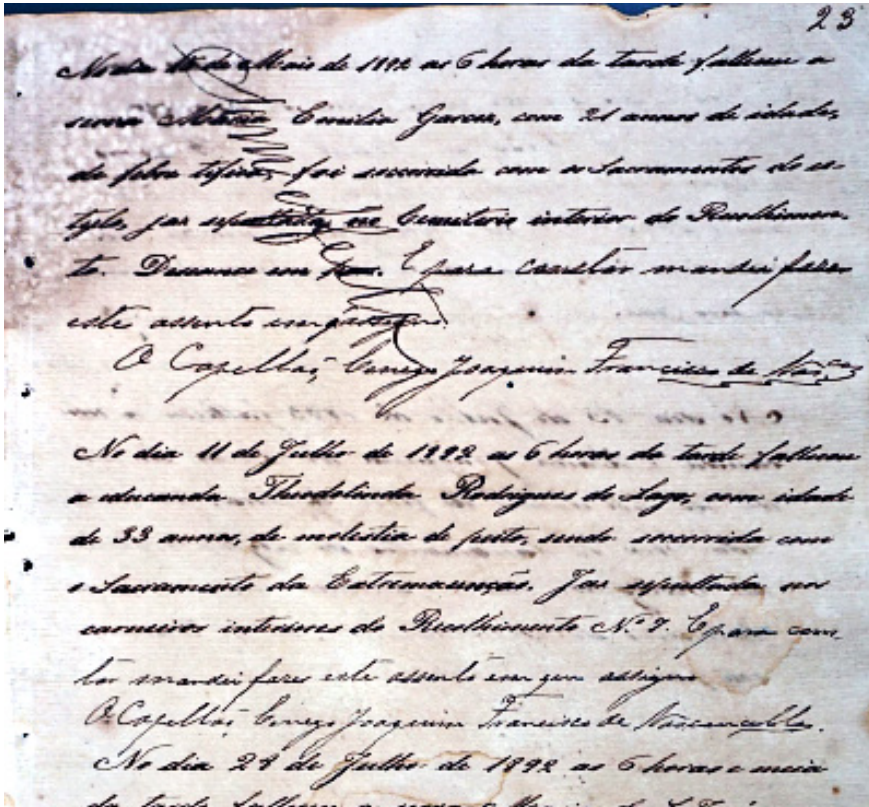 23
No dia 15 de Maio de 1892 as 6 horas da tarde falleceu a
serva Maria Emilia Garcez, com 21 annos de idade,
de febre tifica, foi soccorrida com os Sacramentos do es-
tylo, jas sepultada no Cemiterio interior do Recolhimen-
to. Descance em paz. E para constar mandei fazer
este assento em que assigno.
O Capellaõ, Conego Joaquim Francisco de Vas.cos
No dia 11 de Julho de 1892 as 6 horas da tarde falleceu
a educanda Theodolinda Rodrigues do Lago, com idade
de 33 annos, de molestia de peito, sendo soccorrida com
o Sacramento da Extremaunção. Jas sepultada nos
carneiros interiores do Recolhimento N.º 7. E para cons-
tar mandei fazer este assento em que assigno
O Capellaõ Conego Joaquim Francisco de Vasconcellos.
No dia 28 de Julho de 1892 as 6 horas e meia
da tarde falleceu a serva Maria